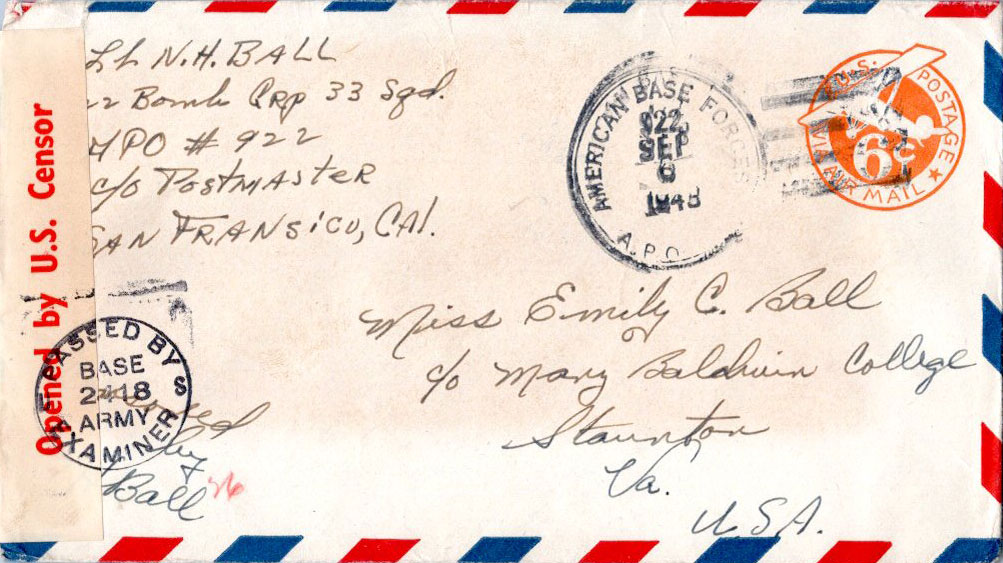 Lt N.H. BALL
22 Bomb Grp 33 Sqd.
APO # 922
c/o POSTMASTER
SAN FRANSICO, CAl.
Opened by U.S. Censor
AMERICAN BASE FORCES
922
SEP
1943
A.P.O.
U.S. POSTAGE
6¢
VIA AIR MAIL
PASSED BY
BASE
ARMY
EXAMINER
by
Ball
Miss Emily C. Ball
c/o Mary Baldwin College
Staunton
Va.
U.S.A.